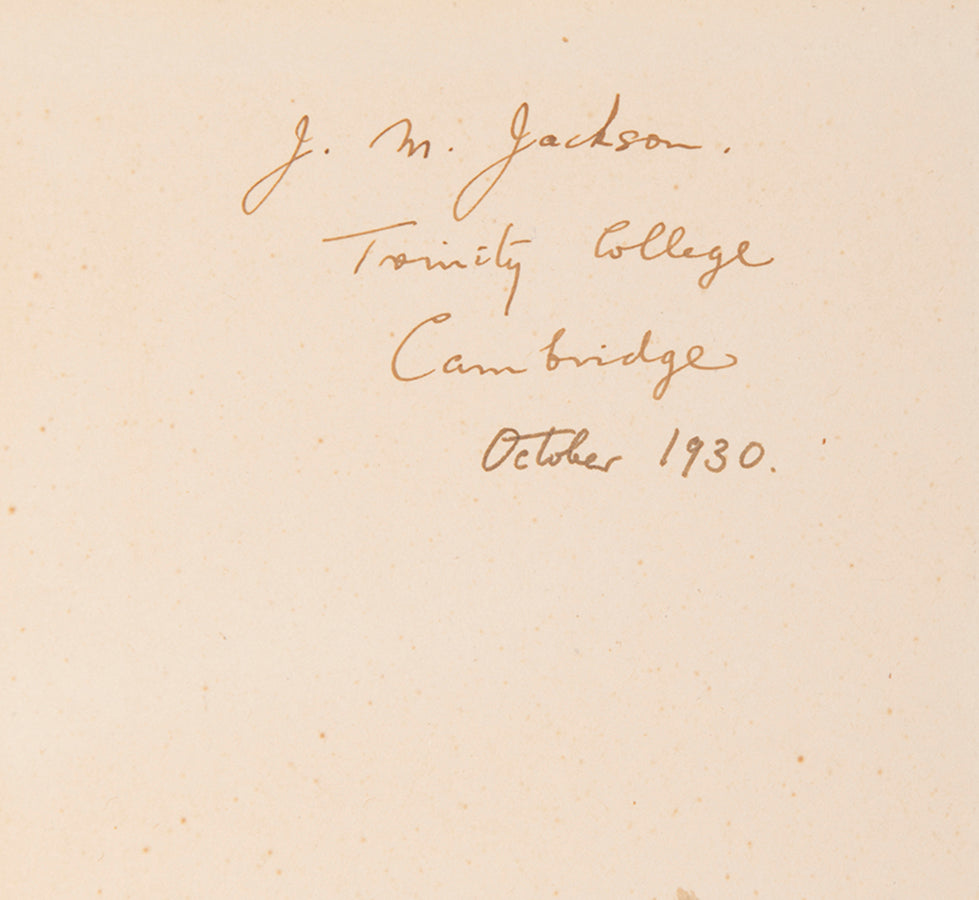 J. M. Jackson.
Trinity College
Cambridge
October 1930.